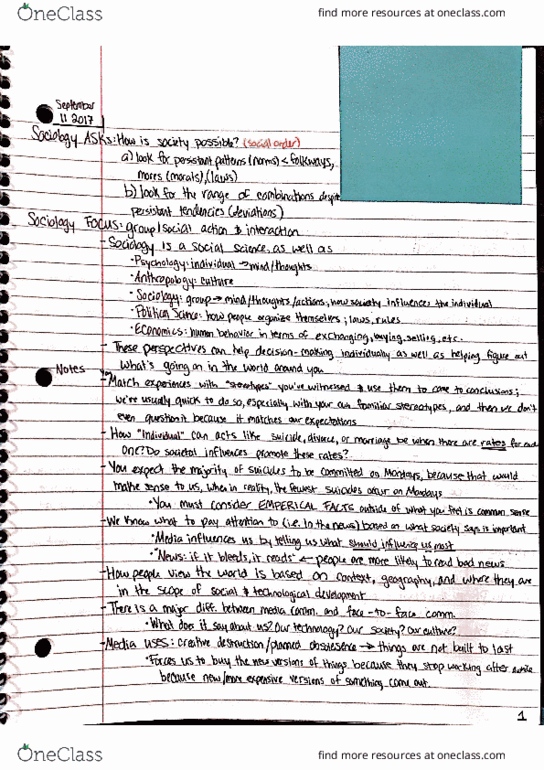 OneClass
find more resources at oneclass.com
September
11 2017
Sociology Asks: How is society possible? (social order)
a) look for persistant patterns (norms) < folkways,
mores (morals), (laws)
b) look for the range of combinations despit
persistent tendencies (deviations)
Sociology Focus: group/social action & interaction
- Sociology is a social science, as well as
• Psychology: individual → mind/thoughts
• Anthropology: culture
• Sociology: group → mind/thoughts/actions, how society influences the individual
• Political Science: how people organize themselves; laws, rules
• Economics: human behavior in terms of exchanging, buying, selling, etc.
- These perspectives can help decision-making individually as well as helping figure out
what's going on in the world around you
Notes
- Match experiences with "stereotypes" you've witnessed & use them to come to conclusions;
we're usually quick to do so, especially with your own familiar stereotypes, and then we don't
even question it because it matches our expectations
- How "individual" can acts like suicide, divorce, or marriage be when there are rates for each
one? Do societal influences promote these rates?
- You expect the majority of suicides to be committed on Mondays, because that would
make sense to us, when in reality, the fewest suicides occur on Mondays
• You must consider EMPERICAL FACTS outside of what you feel is common sense
- We know what to pay attention to (i.e. in the news) based on what society says is important
• Media influences us by telling us what should influence us most
• News: if it bleeds, it reads ← people are more likely to read bad news
- How people view the world is based on context, geography, and where they are
in the scope of social & technological development
- There is a major diff. between media comm. and face-to-face comm.
• What does it say about us? Our technology? Our society? Our culture?
- Media uses: creative destruction/planned → things are not built to last
• Forces us to buy the new versions of things because they stop working after awhile
because new/more expensive versions of something come out.
1
OneClass
find more resources at oneclass.com